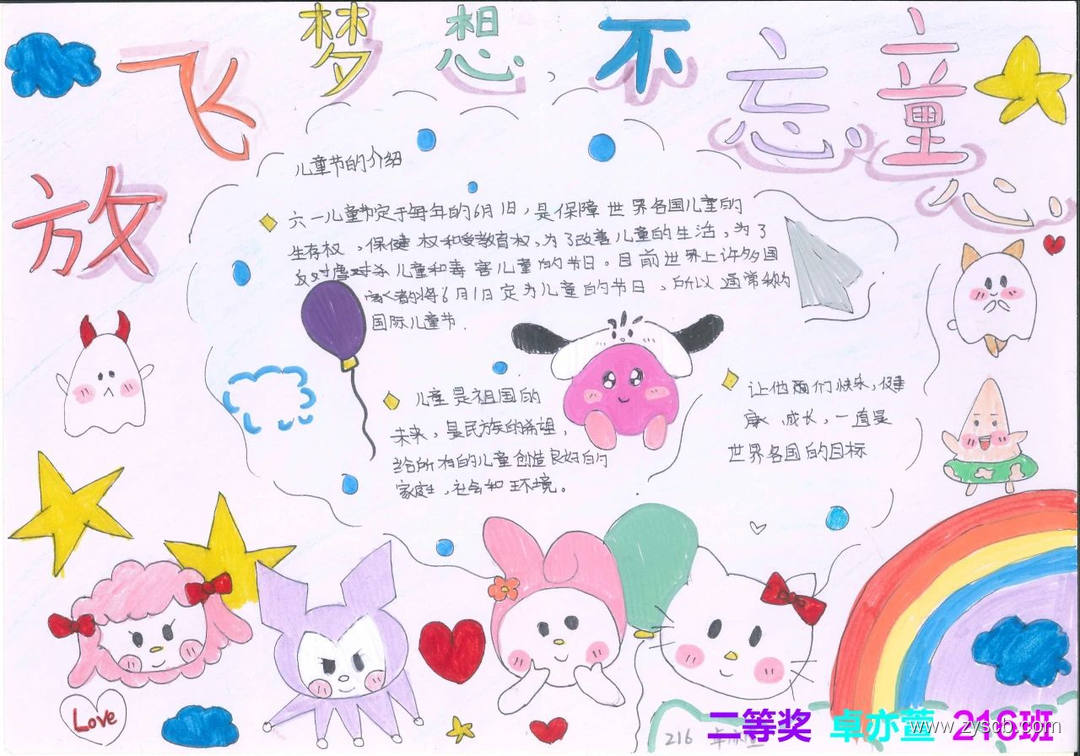 放飞梦想，不忘童心
儿童节的介绍
六一儿童节定于每年的6月1日，是保障世界各国儿童的
生存权，保健权和受教育权，为了改善儿童的生活，为了
反对虐杀儿童和毒害儿童的节日。目前世界上许多国
都将6月1日定为儿童的节日，所以通常称为
国际儿童节.
儿童是祖国的
未来，是民族的希望，
给所有的儿童创造良好的
家庭，社会和环境。
让他们快乐，健
康，成长，一直是
世界各国的目标
Love
216 卓亦萱
二等奖 卓亦萱 216班
www.zyscb.com